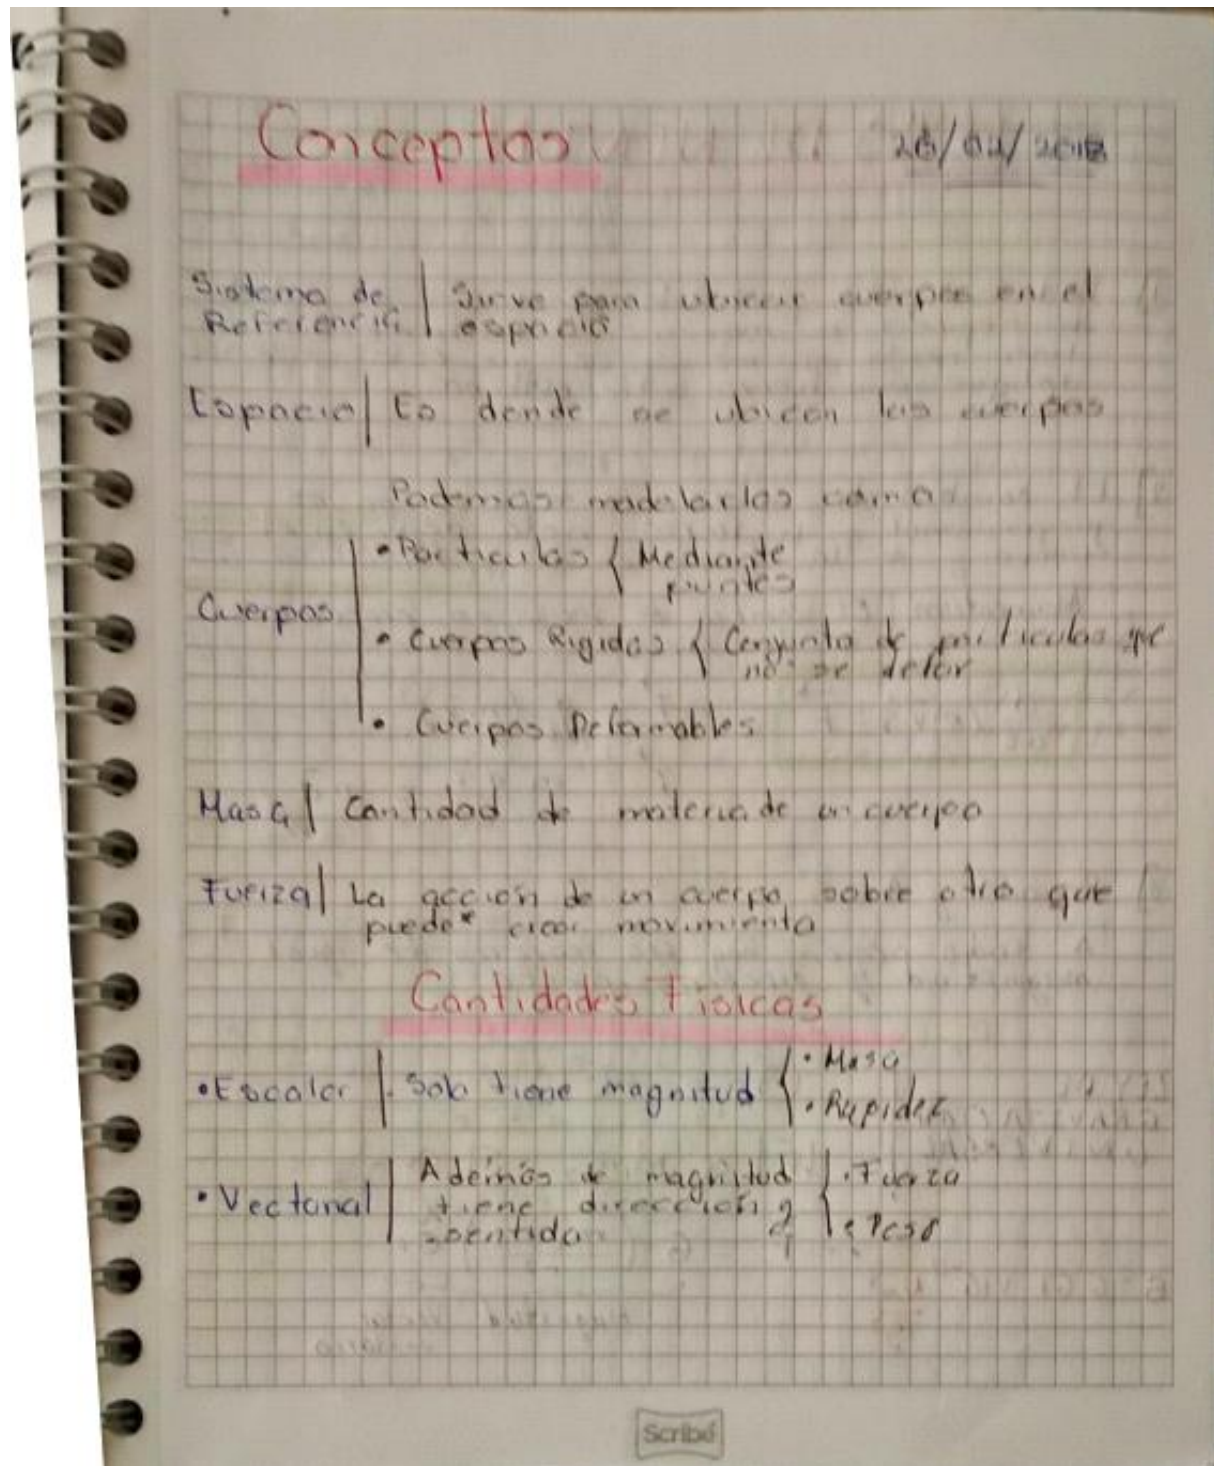 Conceptos
Sistema de | Sirve para ubicar cuerpos en el
Referencia | espacio
Espacio | Es donde se ubican los cuerpos
Podemos modelarlos como
• Particulas { Mediante
puntos
Cuerpos
• Cuerpos Rigidos { Conjunto de particulas que
no se defor
• Cuerpos Deformables
Masa | Cantidad de materia de un cuerpo
Fuerza | La acción de un cuerpo sobre otro que
puede* crear movimiento
Cantidades Físicas
• Escalar | Solo tiene magnitud { • Masa
• Rapidez
• Vectorial | Además de magnitud { • Fuerza
tiene dirección y
sentido • Peso
Scribe